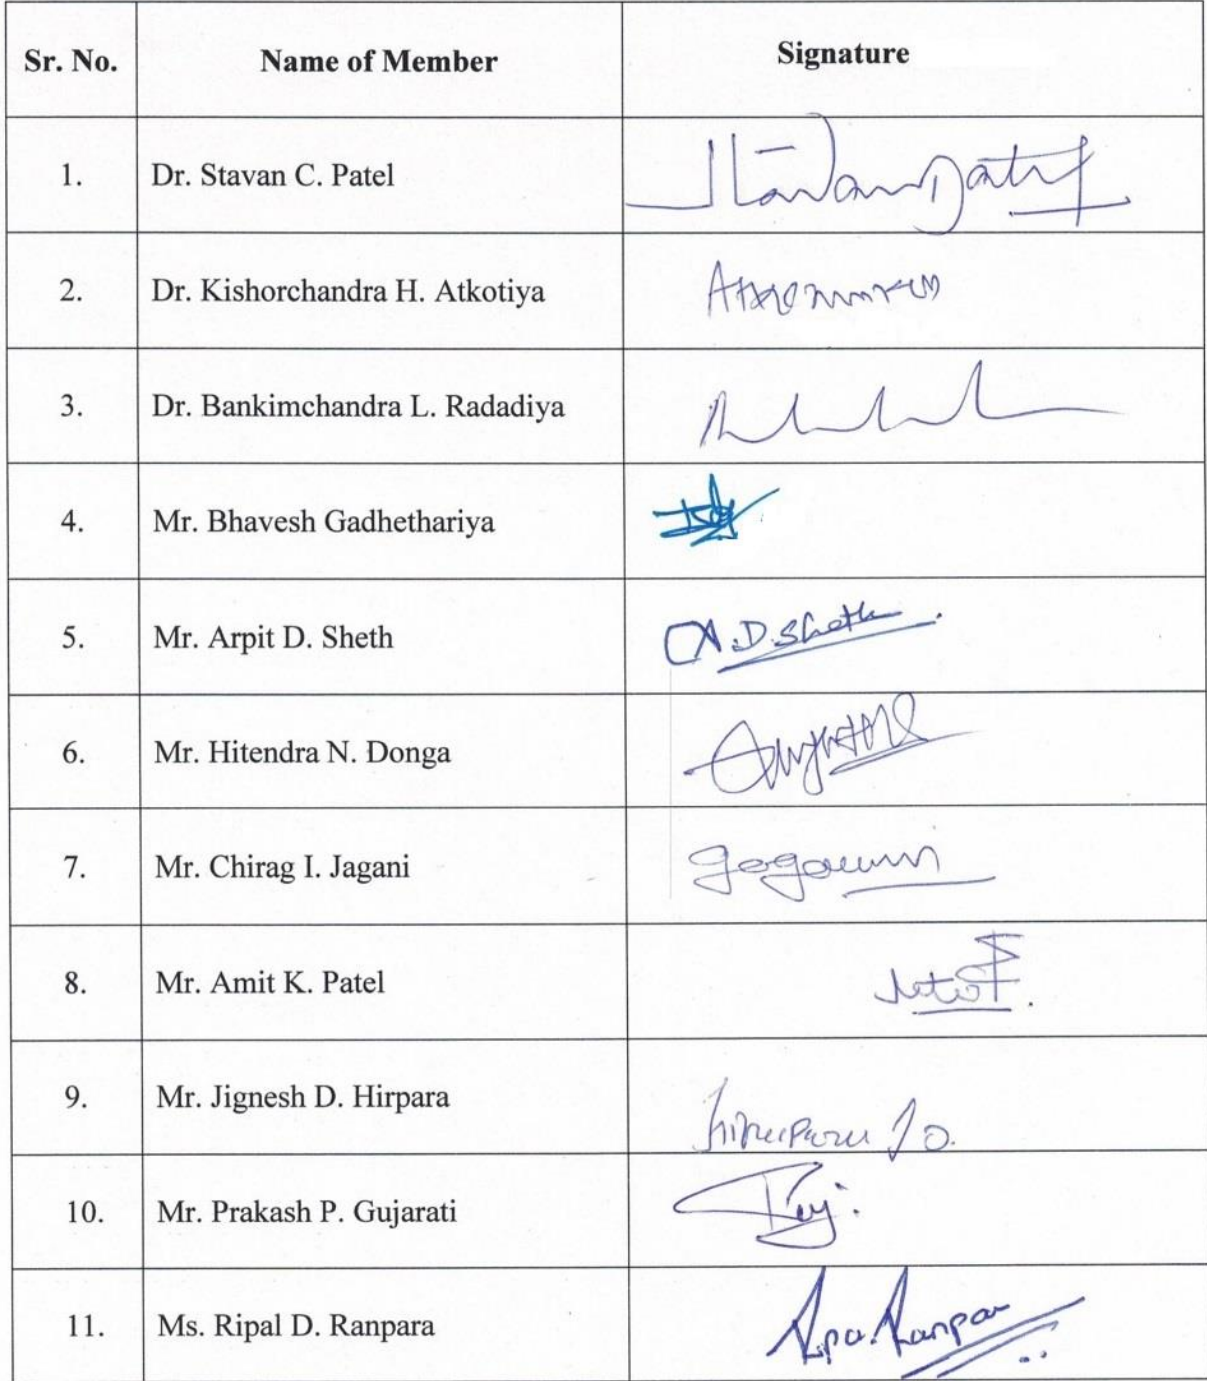 Sr. No. Name of Member Signature
1. Dr. Stavan C. Patel
2. Dr. Kishorchandra H. Atkotiya
3. Dr. Bankimchandra L. Radadiya
4. Mr. Bhavesh Gadhethariya
5. Mr. Arpit D. Sheth A.D.Sheth
6. Mr. Hitendra N. Donga
7. Mr. Chirag I. Jagani
8. Mr. Amit K. Patel
9. Mr. Jignesh D. Hirpara
10. Mr. Prakash P. Gujarati
11. Ms. Ripal D. Ranpara